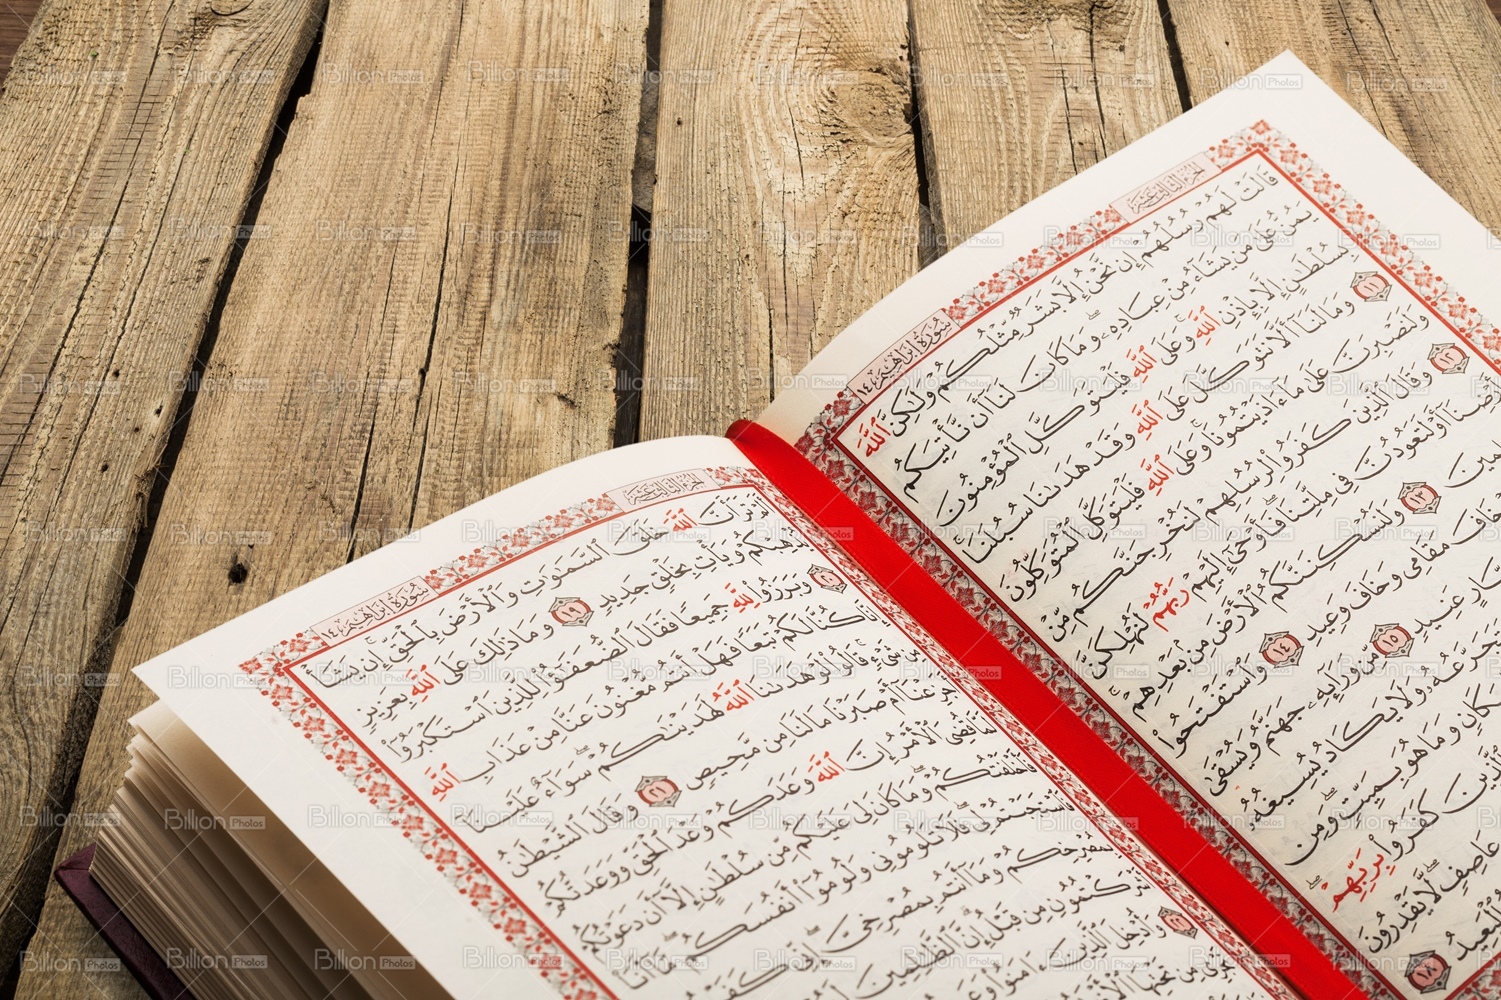 الجزء الثالث عشر
سُورَةُ إِبْرَاهِيمَ ١٤
قَالَتْ لَهُمْ رُسُلُهُمْ إِن نَّحْنُ إِلَّا بَشَرٌ مِّثْلُكُمْ وَلَٰكِنَّ ٱللَّهَ
يَمُنُّ عَلَىٰ مَن يَشَآءُ مِنْ عِبَادِهِۦ وَمَا كَانَ لَنَآ أَن نَّأْتِيَكُم
بِسُلْطَٰنٍ إِلَّا بِإِذْنِ ٱللَّهِ وَعَلَى ٱللَّهِ فَلْيَتَوَكَّلِ ٱلْمُؤْمِنُونَ
١١ وَمَا لَنَآ أَلَّا نَتَوَكَّلَ عَلَى ٱللَّهِ وَقَدْ هَدَىٰنَا سُبُلَنَا
وَلَنَصْبِرَنَّ عَلَىٰ مَآ ءَاذَيْتُمُونَا وَعَلَى ٱللَّهِ فَلْيَتَوَكَّلِ ٱلْمُتَوَكِّلُونَ
١٢ وَقَالَ ٱلَّذِينَ كَفَرُوا۟ لِرُسُلِهِمْ لَنُخْرِجَنَّكُم مِّنْ
أَرْضِنَآ أَوْ لَتَعُودُنَّ فِى مِلَّتِنَا فَأَوْحَىٰٓ إِلَيْهِمْ رَبُّهُمْ لَنُهْلِكَنَّ
١٣ وَلَنُسْكِنَنَّكُمُ ٱلْأَرْضَ مِنۢ بَعْدِهِمْ
خَافَ مَقَامِى وَخَافَ وَعِيدِ ١٤ وَٱسْتَفْتَحُوا۟
عَنِيدٍ ١٥ مِّن وَرَآئِهِۦ جَهَنَّمُ وَيُسْقَىٰ
وَلَا يَكَادُ يُسِيغُهُۥ
مَكَانٍ وَمَا هُوَ بِمَيِّتٍ وَمِن
ٱلَّذِينَ كَفَرُوا۟ بِرَبِّهِمْ
عَاصِفٍ لَّا يَقْدِرُونَ
ٱلْبَعِيدُ ١٨
الجزء الثالث عشر
سُورَةُ إِبْرَاهِيمَ ١٤
تَرَ أَنَّ ٱللَّهَ خَلَقَ ٱلسَّمَٰوَٰتِ وَٱلْأَرْضَ بِٱلْحَقِّ إِن يَشَأْ
يُذْهِبْكُمْ وَيَأْتِ بِخَلْقٍ جَدِيدٍ ١٩ وَمَا ذَٰلِكَ عَلَى ٱللَّهِ بِعَزِيزٍ
٢٠ وَبَرَزُوا۟ لِلَّهِ جَمِيعًا فَقَالَ ٱلضُّعَفَٰٓؤُا۟ لِلَّذِينَ ٱسْتَكْبَرُوٓا۟
إِنَّا كُنَّا لَكُمْ تَبَعًا فَهَلْ أَنتُم مُّغْنُونَ عَنَّا مِنْ عَذَابِ ٱللَّهِ
مِن شَىْءٍ قَالُوا۟ لَوْ هَدَىٰنَا ٱللَّهُ لَهَدَيْنَٰكُمْ سَوَآءٌ عَلَيْنَآ
أَجَزِعْنَآ أَمْ صَبَرْنَا مَا لَنَا مِن مَّحِيصٍ ٢١ وَقَالَ ٱلشَّيْطَٰنُ
لَمَّا قُضِىَ ٱلْأَمْرُ إِنَّ ٱللَّهَ وَعَدَكُمْ وَعْدَ ٱلْحَقِّ وَوَعَدتُّكُمْ
فَأَخْلَفْتُكُمْ وَمَا كَانَ لِىَ عَلَيْكُم مِّن سُلْطَٰنٍ إِلَّآ أَن دَعَوْتُكُمْ
فَٱسْتَجَبْتُمْ لِى فَلَا تَلُومُونِى وَلُومُوٓا۟ أَنفُسَكُم مَّآ أَنَا۠
بِمُصْرِخِكُمْ وَمَآ أَنتُم بِمُصْرِخِىَّ إِنِّى كَفَرْتُ
أَشْرَكْتُمُونِ مِن قَبْلُ إِنَّ ٱلظَّٰلِمِينَ
٢٢ وَأُدْخِلَ ٱلَّذِينَ ءَامَنُوا۟
تَجْرِى مِن تَحْتِهَا
Billion Photos